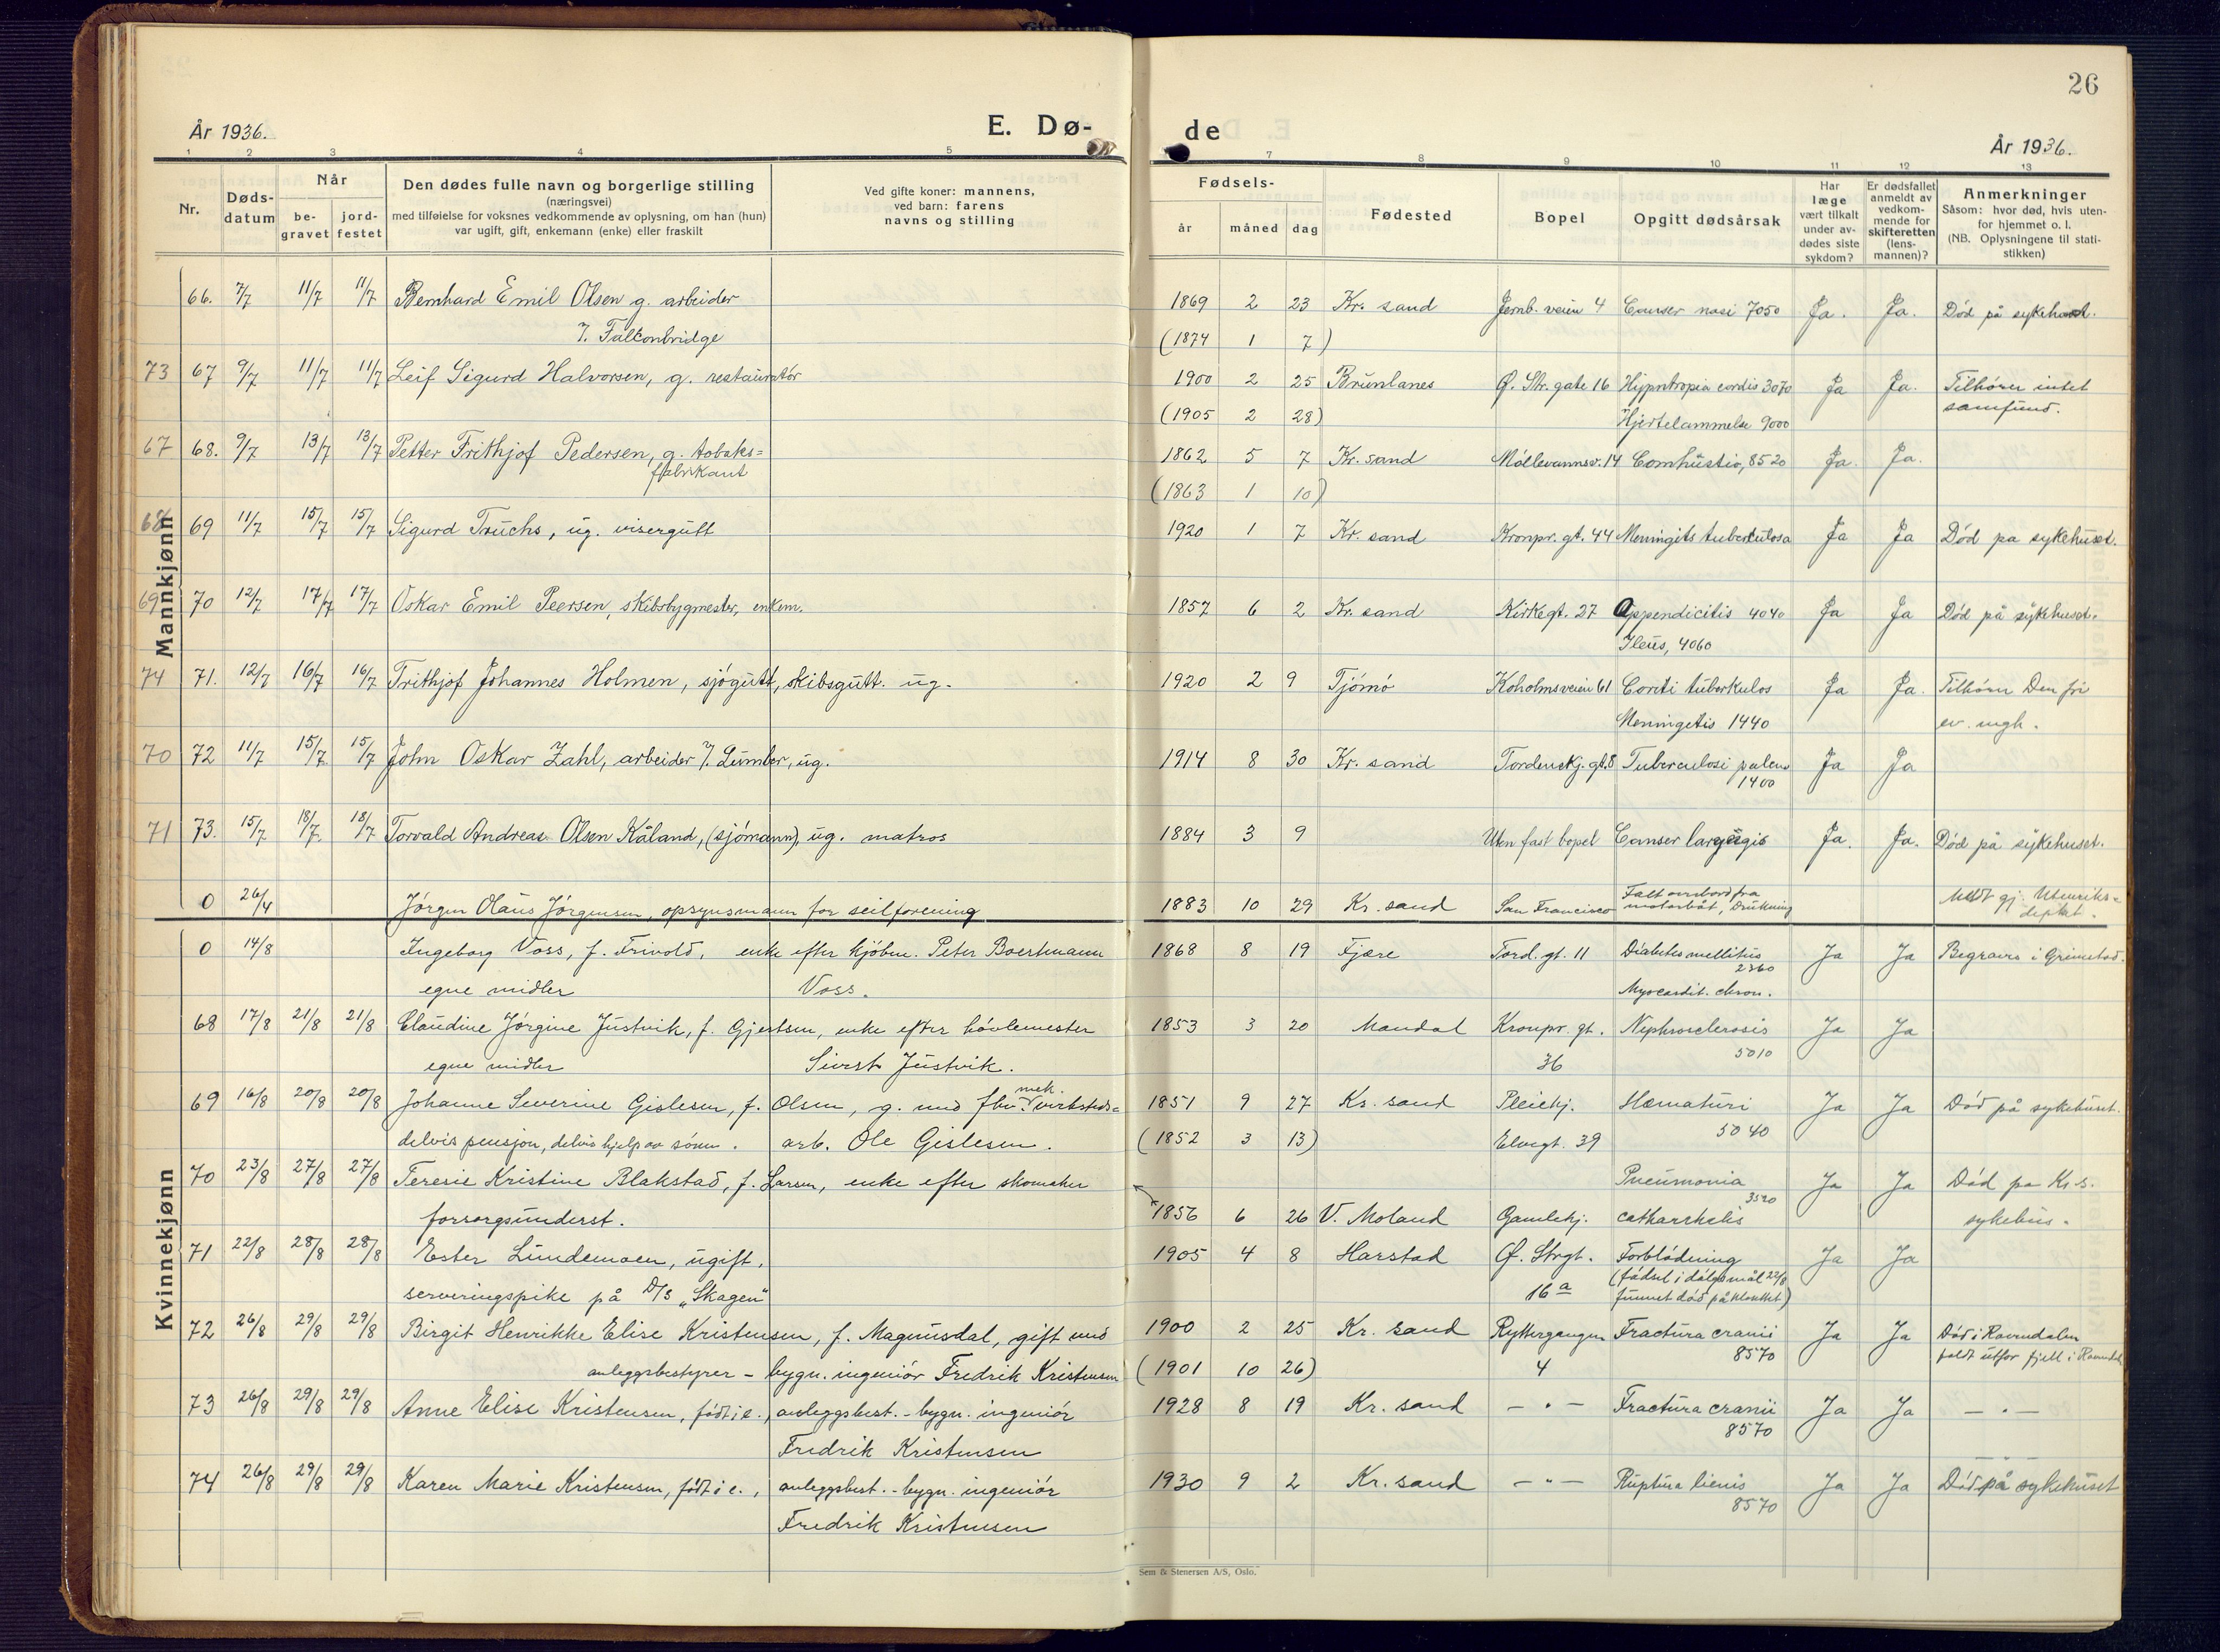 26
År 1936.
E. Dø-
de
År 1936.
1 2 3 4 5 7 8 9 10 11 12 13
Nr.
Døds-
datum
Når
be-
gravet
jord-
festet
Den dødes fulle navn og borgerlige stilling
(næringsvei)
med tilføielse for voksnes vedkommende av oplysning, om han (hun)
var ugift, gift, enkemann (enke) eller fraskilt
Ved gifte koner: mannens,
ved barn: farens
navns og stilling
Fødsels-
år måned dag
Fødested
Bopel
Opgitt dødsårsak
Har
læge
vært tilkalt
under av-
dødes siste
sykdom?
Er dødsfallet
anmeldt av
vedkom-
mende for
skifteretten
(lens-
mannen)?
Anmerkninger
Såsom: hvor død, hvis uten-
for hjemmet o. l.
(NB. Oplysningene til stati-
stikken)
Mannkjønn
66. 7/7 11/7 11/7 Bernhard Emil Olsen g. arbeider 1869 2 23 Kr. sand Jernb. veien 4 Canser nasi 7050 Ja. Ja. Død på sykehuset.
7. Falconbridge (1874 1 7)
73 67 9/7 11/7 11/7 Leif Sigurd Halvorsen, g. restauratør 1900 2 25 Brunlanes Ø. Str. gate 16 Hypntropia cordis 3070 Ja Ja. Tilhører intet
samfund.
(1905 2 28) Hjertelammelse 9000
67 68. 9/7 13/7 13/7 Petter Frithjof Pedersen, g. tobaks=
fabrikant 1862 5 7 Kr. sand Møllevannsv. 14 Comhustio, 8520 Ja. Ja.
(1863 1 10)
68 69 11/7 15/7 15/7 Sigurd Truchs, ug. visergutt 1920 1 7 Kr. sand Kronpr. gt. 44 Meningits tubertulosa Ja Ja Død pa sykehuset.
69 70 12/7 17/7 17/7 Oskar Emil Peersen, skibsbygmester, enkem. 1857 6 2 Kr. sand Kirkegt. 27 Appendicitis 4040 Ja Ja Død på sykehuset.
Ileus, 4060
74 71. 12/7 16/7 16/7 Frithjof Johannes Holmen, sjøgutt, skibsgutt. ug. 1920 2 9 Tjømø Koholmsveien 61 tuberkulos Ja Ja. Tilhører Den fri
Meningetis 1440 ev. mgh.
70 72 11/7 15/7 15/7 John Oskar Zahl, arbeider 7. Lumber, ug. 1914 8 30 Kr. sand Tordenskj. gt. 8 Tuberculosi pulens
1400 Ja Ja
71 73. 15/7 18/7 18/7 Torvald Andreas Olsen Kåland, (sjømann), ug. matros 1884 3 9 Uten fast bopel Canser largngis Ja. Ja. Død på sykehuset.
0 26/4 Jørgen Olaus Jørgensen, opsynsmann for seilforening 1883 10 29 Kr. sand San Francisco Falt overbord fra
motorbåt, Drukning Meldt gj. Utenriks=
deptet.
Kvinnekjønn
0 14/8 Ingeborg Voss, f. Frivold, enke efter kjøbm. Peter Boertmann 1868 8 19 Fjære Tord. gt. 11 Diabetes mellitus
2360 Ja Ja Begraves i Grimstad.
egne midler Voss. Myocardit. chron.
68 17/8 21/8 21/8 Claudine Jørgine Justvik, f. Gjertsen, enke efter høvlemester 1853 3 20 Mandal Kronpr. gt. Nephrosclerosis Ja Ja
egne midler Sivert Justvik. 36 5010
69 16/8 20/8 20/8 Johanne Severine Gislesen, f. Olsen, g. med fhv. mek. verksteds= 1851 9 27 Kr. sand Pleiehj. Hæmaturi Ja Ja Død på sykehuset.
delvis pensjon, delvis hjelp av sønn. arb. Ole Gislesen. (1852 3 13) Elvegt. 39 5040
70 23/8 27/8 27/8 Teresie Kristine Blakstad, f. Larsen, enke efter skomaker Pneumonia
3520 Ja Ja Død pa Kr.s.
forsorgsunderst. 1856 6 26 V. Moland Gamlehj. catharrhelis sykehus.
71 22/8 28/8 28/8 Ester Lundemoen, ugift, 1905 4 8 Harstad Ø. Strgt. Forblødning Ja Ja
serveringspike på D/S „Skagen" 16 a (fødsel i dølgsmål 22/8
funnet død på klosettet)
72 26/8 29/8 29/8 Birgit Henrikke Elise Kristensen, f. Magnusdal, gift med 1900 2 25 Kr. sand Ryttergangen Fractura cranii
8570 Ja Ja Død i Ravnedalen
anleggsbestyrer - bygn. ingeniør Fredrik Kristensen (1901 10 26) 4 faldt utfor fjell i
73 26/8 29/8 29/8 Anne Elise Kristensen, født i e., anleggsbest. - bygn. ingeniør 1928 8 19 Kr. sand — " — Fractura cranii
8570 Ja Ja — " —
Fredrik Kristensen
74 26/8 29/8 29/8 Karen Marie Kristensen, født i e., anleggsbest. - bygn. ingeniør 1930 9 2 Kr. sand — " — Ruptura lienis
8570 Ja Ja Død på sykehuset
Fredrik Kristensen
Sem & Stenersen A/S, Oslo.